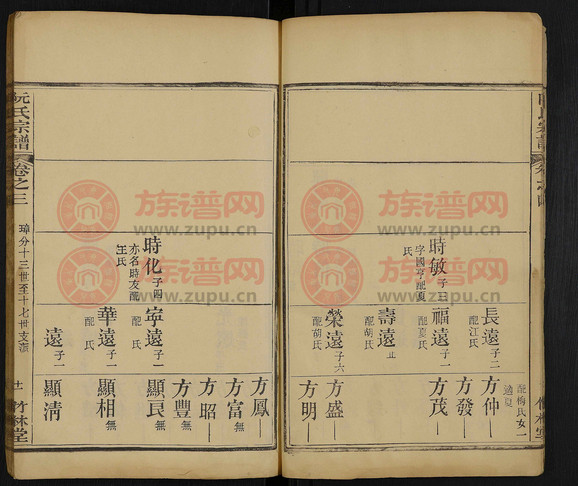 時敏 子三
字國亨配夏
氏
長遠 子二
配江氏
福遠 子一
配夏氏
壽遠
配胡氏
榮遠 子六
配胡氏
配梅氏女一
適夏
方仲
方發
方茂
方盛
方明
阮氏宗譜
卷之三
璋分十三世至十七世支譜
竹林堂
時化 子四
亦名時友配
王氏
寧遠 子一
配 氏
華遠 子一
配 氏
遠 子一
方鳳
方富 無
方昭
方豐 無
顯良 無
顯相 無
顯清
族谱网
www.zupu.cn
族谱网
www.zupu.cn
族谱网
www.zupu.cn
族谱网
www.zupu.cn